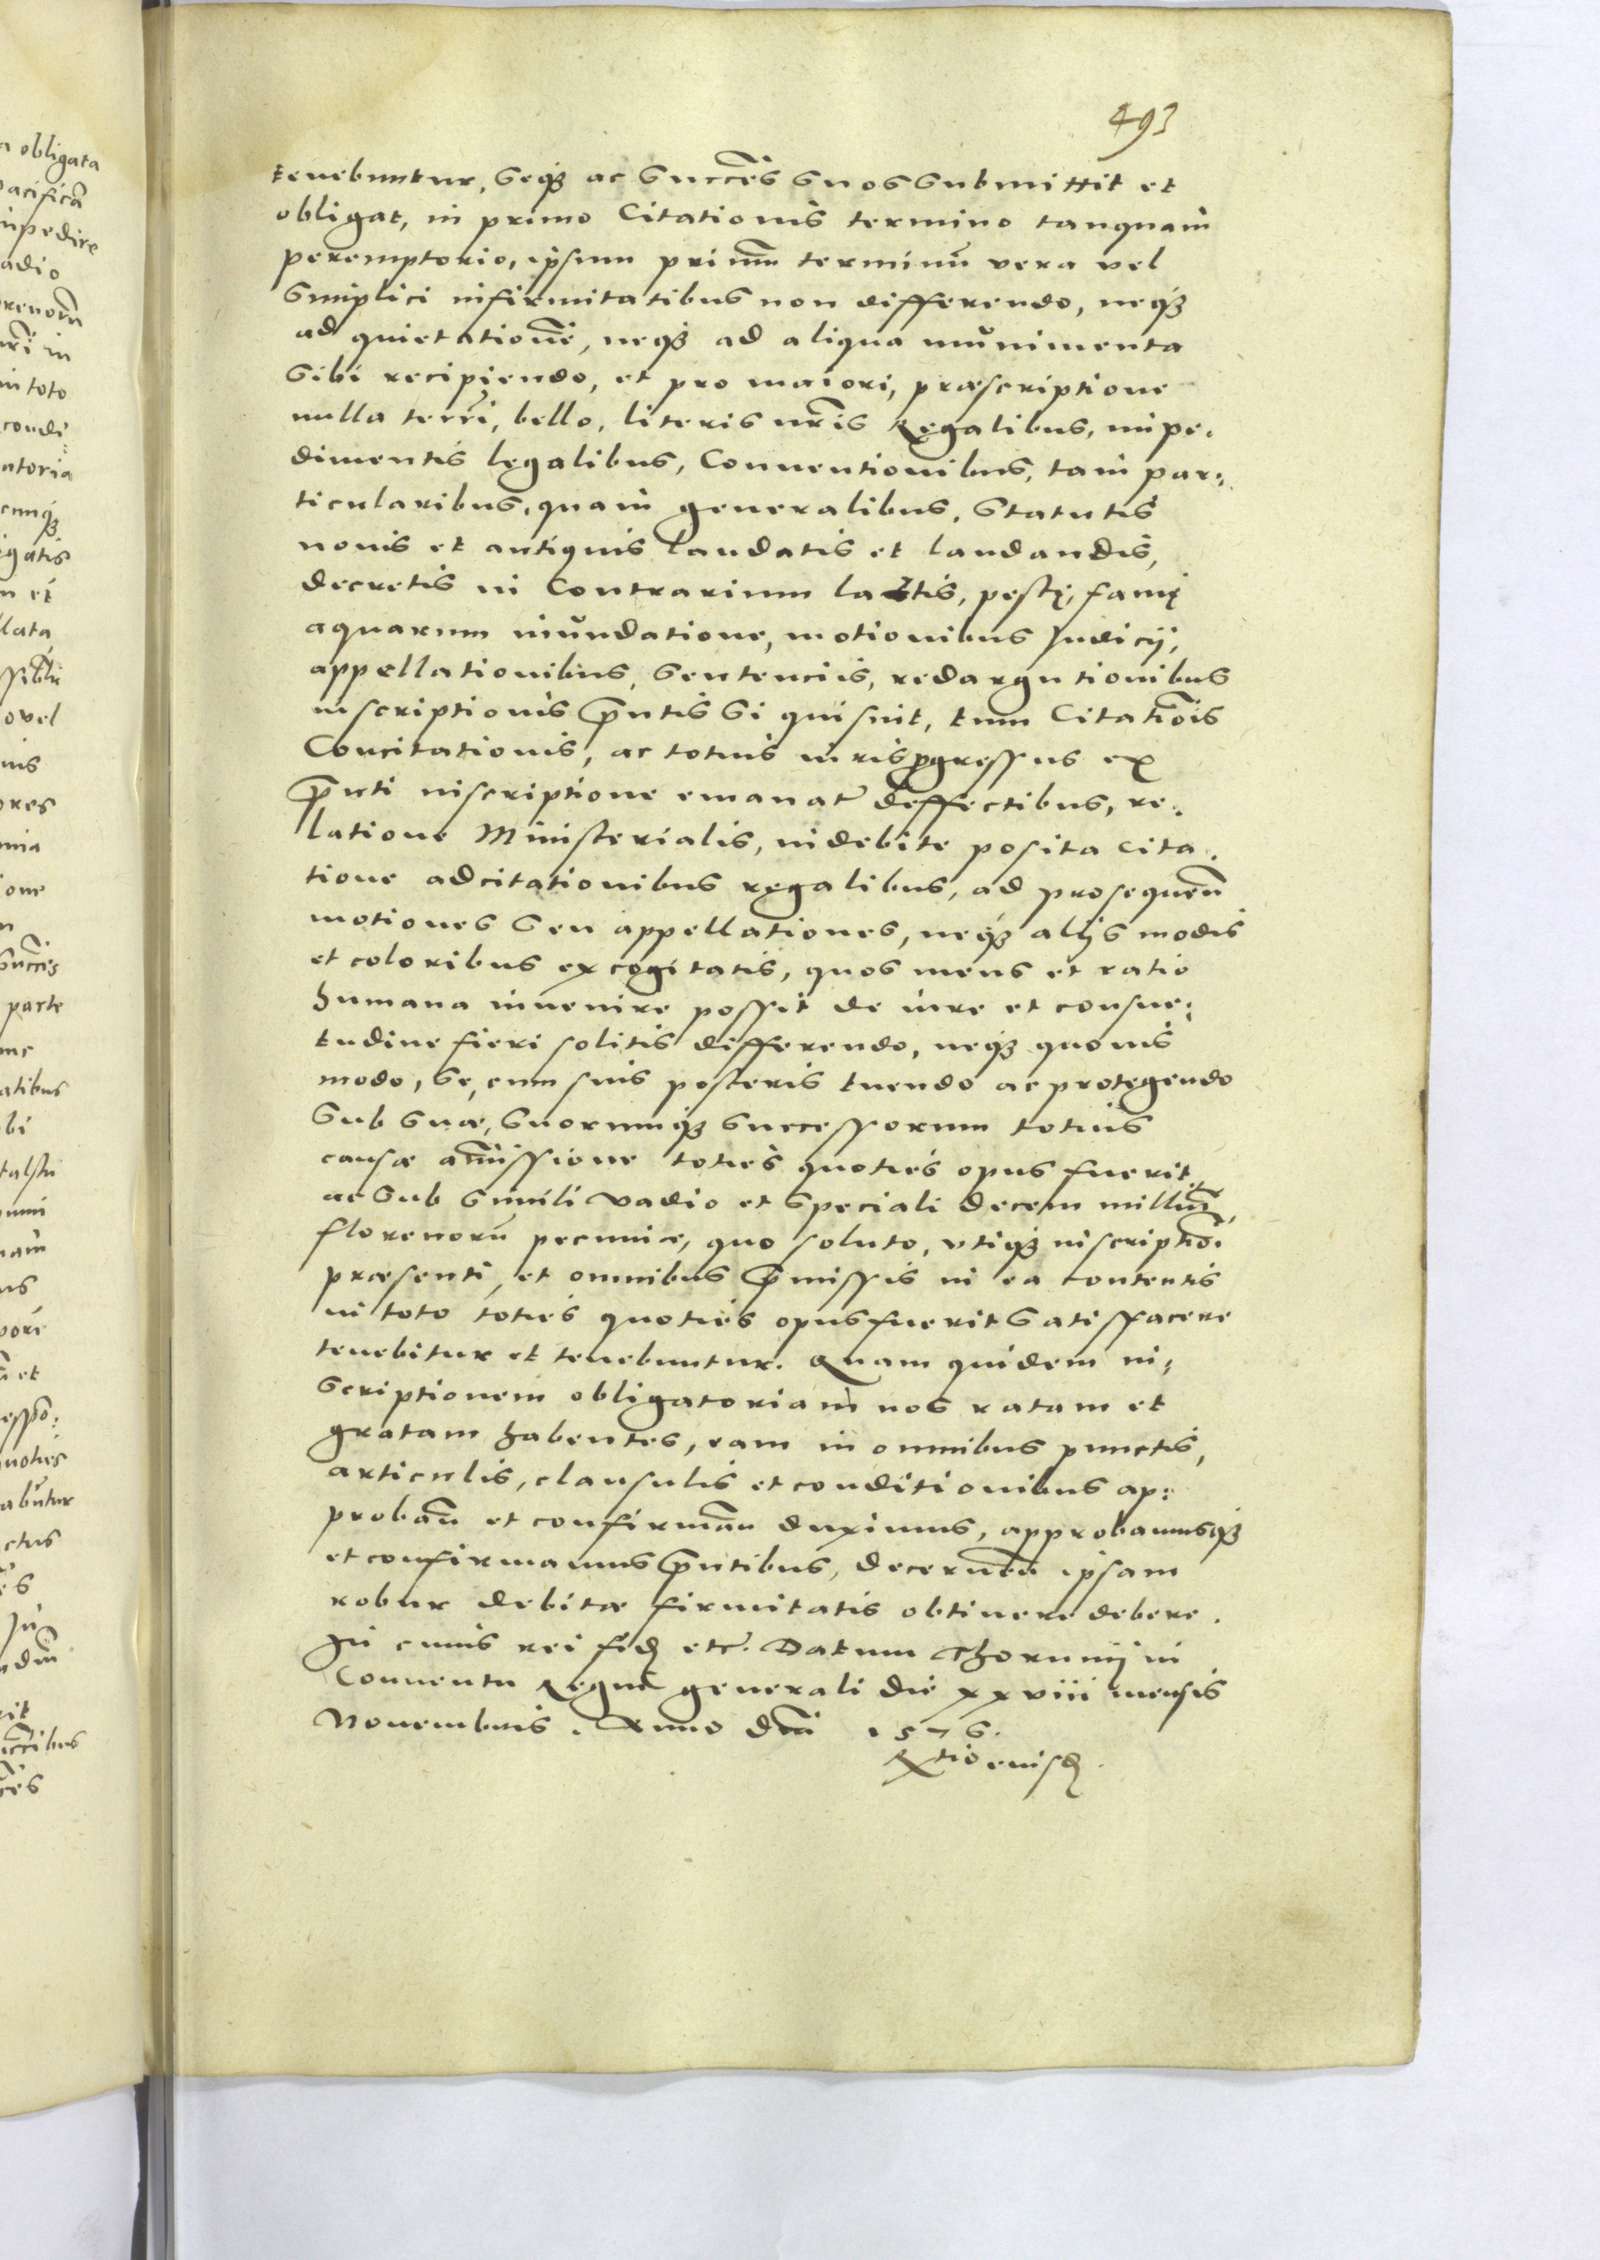 493
tenebuntur, seqꝫ ac succes̃ suos submittit et
obligat, in primo Citationis termino tanquam
peremptorio, ipsum primũ terminũ vera vel
simplici infirmitatibus non differendo, neqꝫ
ad quietationẽ, neqꝫ ad aliqua munimenta
sibi recipiendo, et pro maiori, præscriptione
nulla terrĩ, bello, literis nr̃is Regalibus, impe-
dimentis legalibus, Conuentionibus, tam par-
ticularibus, quam generalibus, statutis
nouis et antiquis laudatis et laudandis,
decretis in Contrarium latis, pestę, famę
aquarum inundatione, motionibus Judicij,
appellationibus, sentenciis, redargutionibus
inscriptionis p̃ntis si qui sint, tum Citatiõis
Concitationis, ac totius iuris progressus ex
p̃nti inscriptione emanat̃ deffectibus, re-
latione Ministerialis, indebite posita Cita-
tione adcitationibus regalibus, ad prosequen̄
motiones seu appellationes, neqꝫ alijs modis
et coloribus excogitatis, quos mens et ratio
humana inuenire possit de iure et consue-
tudine fieri solitis differendo, neqꝫ quouis
modo, se, cum suis posteris tuendo ac protegendo
sub suæ, suorumqꝫ successorum totius
causæ amissione toties quoties opus fuerit,
ac sub simili vadio et speciali decem milliũ
florenorũ pecuniæ, quo soluto, vtiqꝫ inscriptiõi
præsenti, et omnibus p̃missis in ea contentis
in toto toties quoties opus fuerit satisfacere
tenebitur et tenebuntur. Quam quidem in-
scriptionem obligatoriam nos ratam et
gratam habentes, eam in omnibus punctis,
articulis, clausulis et conditionibus ap-
proban̄ et confirman̄ duximus, approbamusqꝫ
et confirmamus p̃ntibus, decernen̄ ipsam
robur debitæ firmitatis obtinere debere.
In cuius rei fidẽ etc̃. Datum Thorunij in
Conuentu Regni generali die xxviii mensis
Nouembris. Anno Dñi 1576.
Rtio eiusd̃.
a obligata
pacificã
impedire
adio
orenorũ
in toto
condi-
atoria
cumqꝫ
igatis
n et
llata
ovel
nis
ores
nia
ione
succẽs
parte
me
atibus
bi
nam
us
et
quoties
abũtur
ctus
Ju